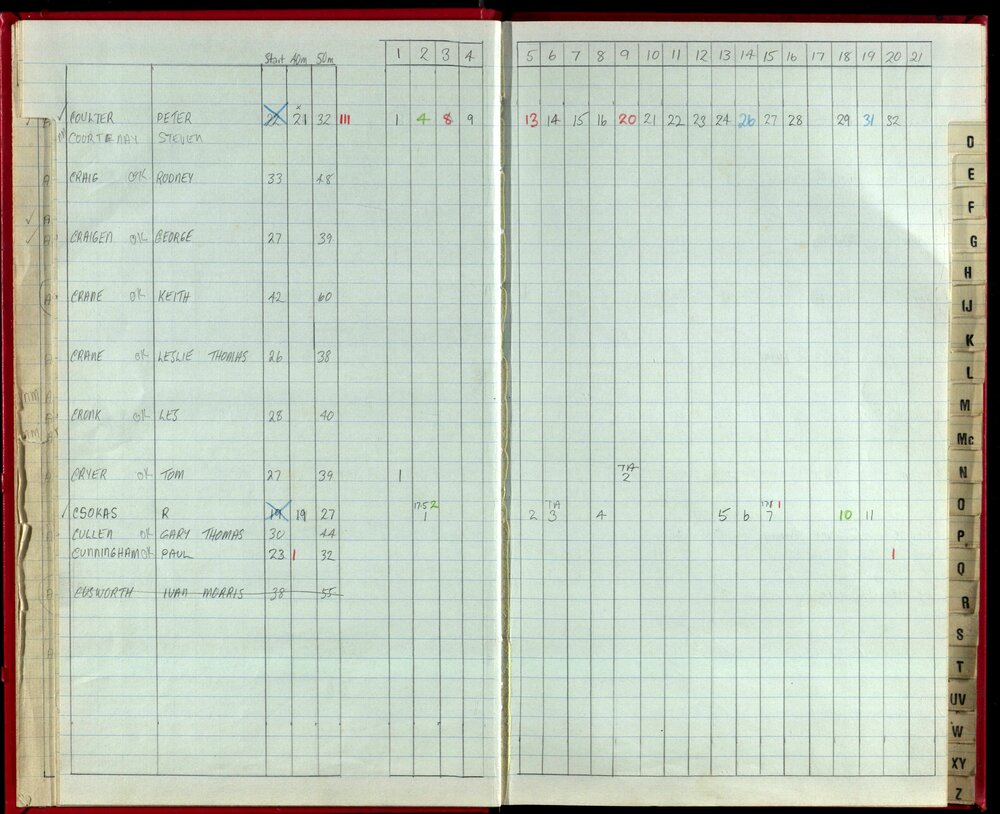 Start 40m 50m 1 2 3 4 5 6 7 8 9 10 11 12 13 14 15 16 17 18 19 20 21
✓ COULTER PETER 22 x 21 32 III 1 4 8 9 13 14 15 16 20 21 22 23 24 26 27 28 29 31 32
COURTENAY STEVEN
CRAIG OK RODNEY 33 48
CRAIGEN OK GEORGE 27 39
CRANE OK KEITH 42 60
CRANE OK LESLIE THOMAS 26 38
CRONK OK LES 28 40
TA
CRYER OK TOM 27 39 1 2
1752 TA 1
✓ CSOKAS R 19 19 27 1 2 3 4 5 6 7 10 11
CULLEN OK GARY THOMAS 30 44
CUNNINGHAM OK PAUL 23 1 32 1
CUSWORTH IVAN MORRIS 38 55
D
E
F
G
H
IJ
K
L
M
Mc
N
O
P
Q
R
S
T
UV
W
XY
Z